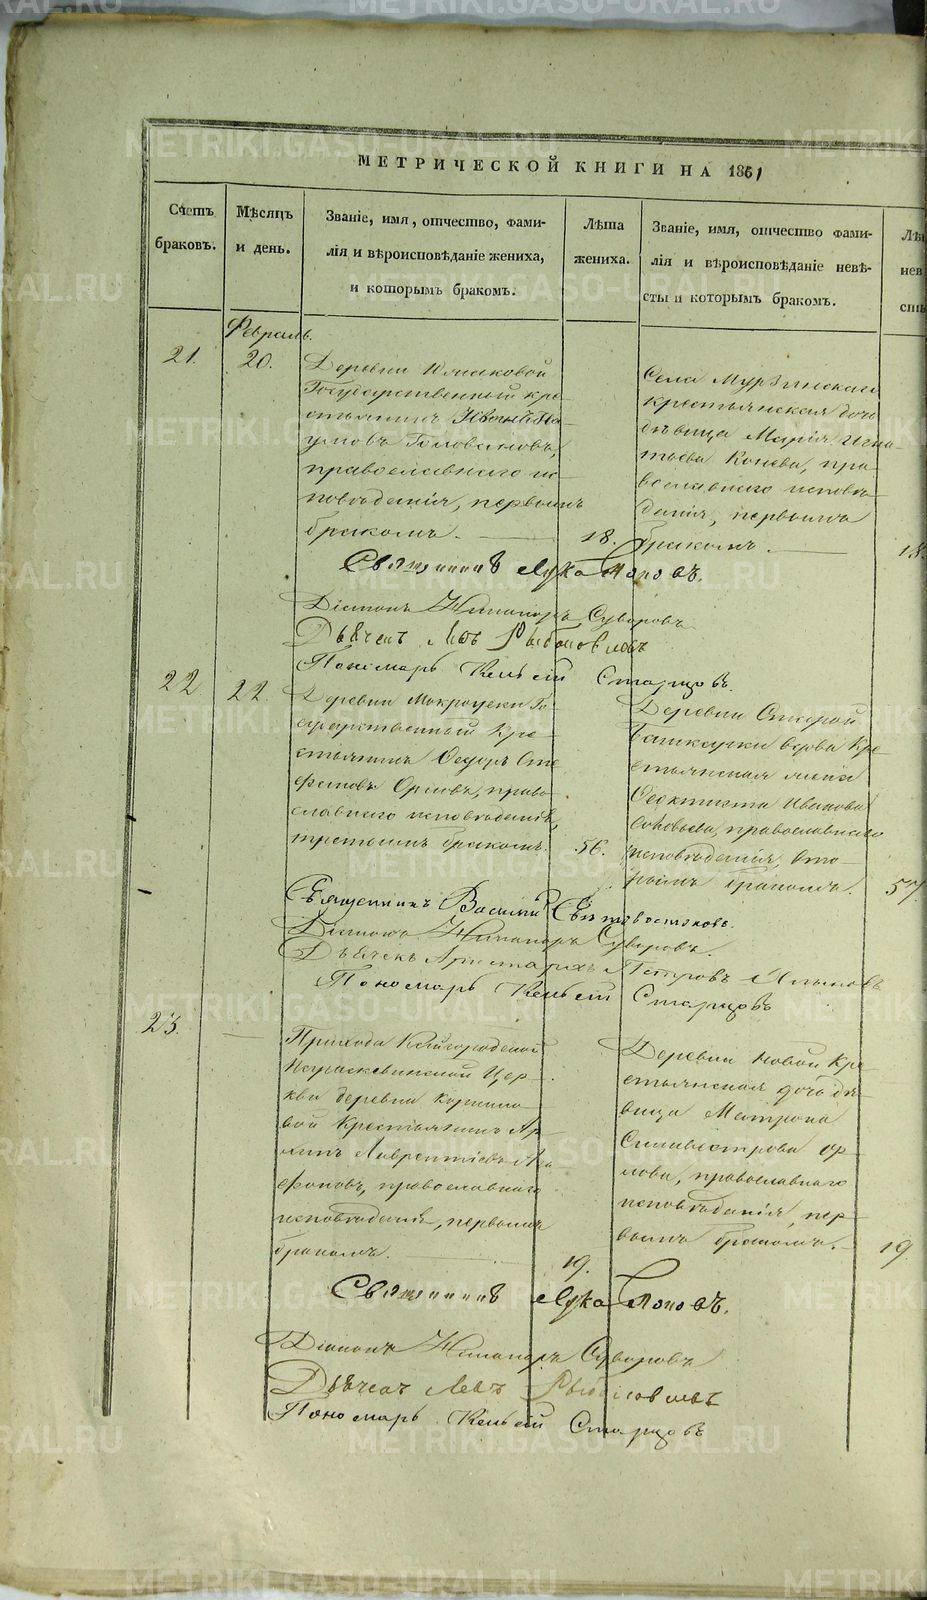 МЕТРИЧЕСКОЙ КНИГИ НА 1861
Счетъ
браковъ.
Мѣсяцъ
и день.
Званіе, имя, отчество, фами-
лія и вѣроисповѣданіе жениха,
и которымъ бракомъ.
Лѣта
жениха.
Званіе, имя, отчество фами-
лія и вѣроисповѣданіе невѣ-
сты и которымъ бракомъ.
Лѣ
нев
сты
Февраль.
21.
20.
Деревни
Государственный кре-
стьянинъ На-
умовъ Головановъ,
православнаго ис-
повѣданія, первымъ
бракомъ.
18.
Села Мурзинскаго
крестьянская дочь
дѣвица Марія Игна-
тьева Конева, пра-
вославнаго исповѣ-
данія, первымъ
бракомъ.
18
Священникъ Лука Поповъ.
Діаконъ Никаноръ Суворовъ
Дьячекъ Левъ
Пономарь Старцовъ.
22
22.
Деревни Мокроуски Го-
сударственный Кре-
стьянинъ Ѳедоръ Сте
фановъ Орловъ, право-
славнаго исповѣданія,
третьимъ бракомъ.
56.
Деревни Старой
Башкарки вдова Кре-
стьянская жена
Ѳеоктиста Иванова
Соловьева, православнаго
исповѣданія, вто-
рымъ бракомъ.
57.
Священникъ Василій
Діаконъ Никаноръ Суворовъ.
Дьячекъ Аристархъ Петровъ
Пономарь Старцовъ
23.
Прихода Кайгородской
Параскевинской Цер-
кви деревни
вой Крестьянинъ Ар-
Лаврентіевъ Ага
фоновъ, православнаго
исповѣданія, первымъ
бракомъ.
19.
Деревни Новой Кре-
стьянская дочь дѣ-
вица Матрона
Сильвестрова Ор-
лова, православнаго
исповѣданія, пер-
вымъ бракомъ.
19
Священникъ Лука Поповъ.
Діаконъ Никаноръ Суворовъ
Дьячекъ Левъ
Пономарь Старцовъ
METRIKI.GASO-URAL.RU